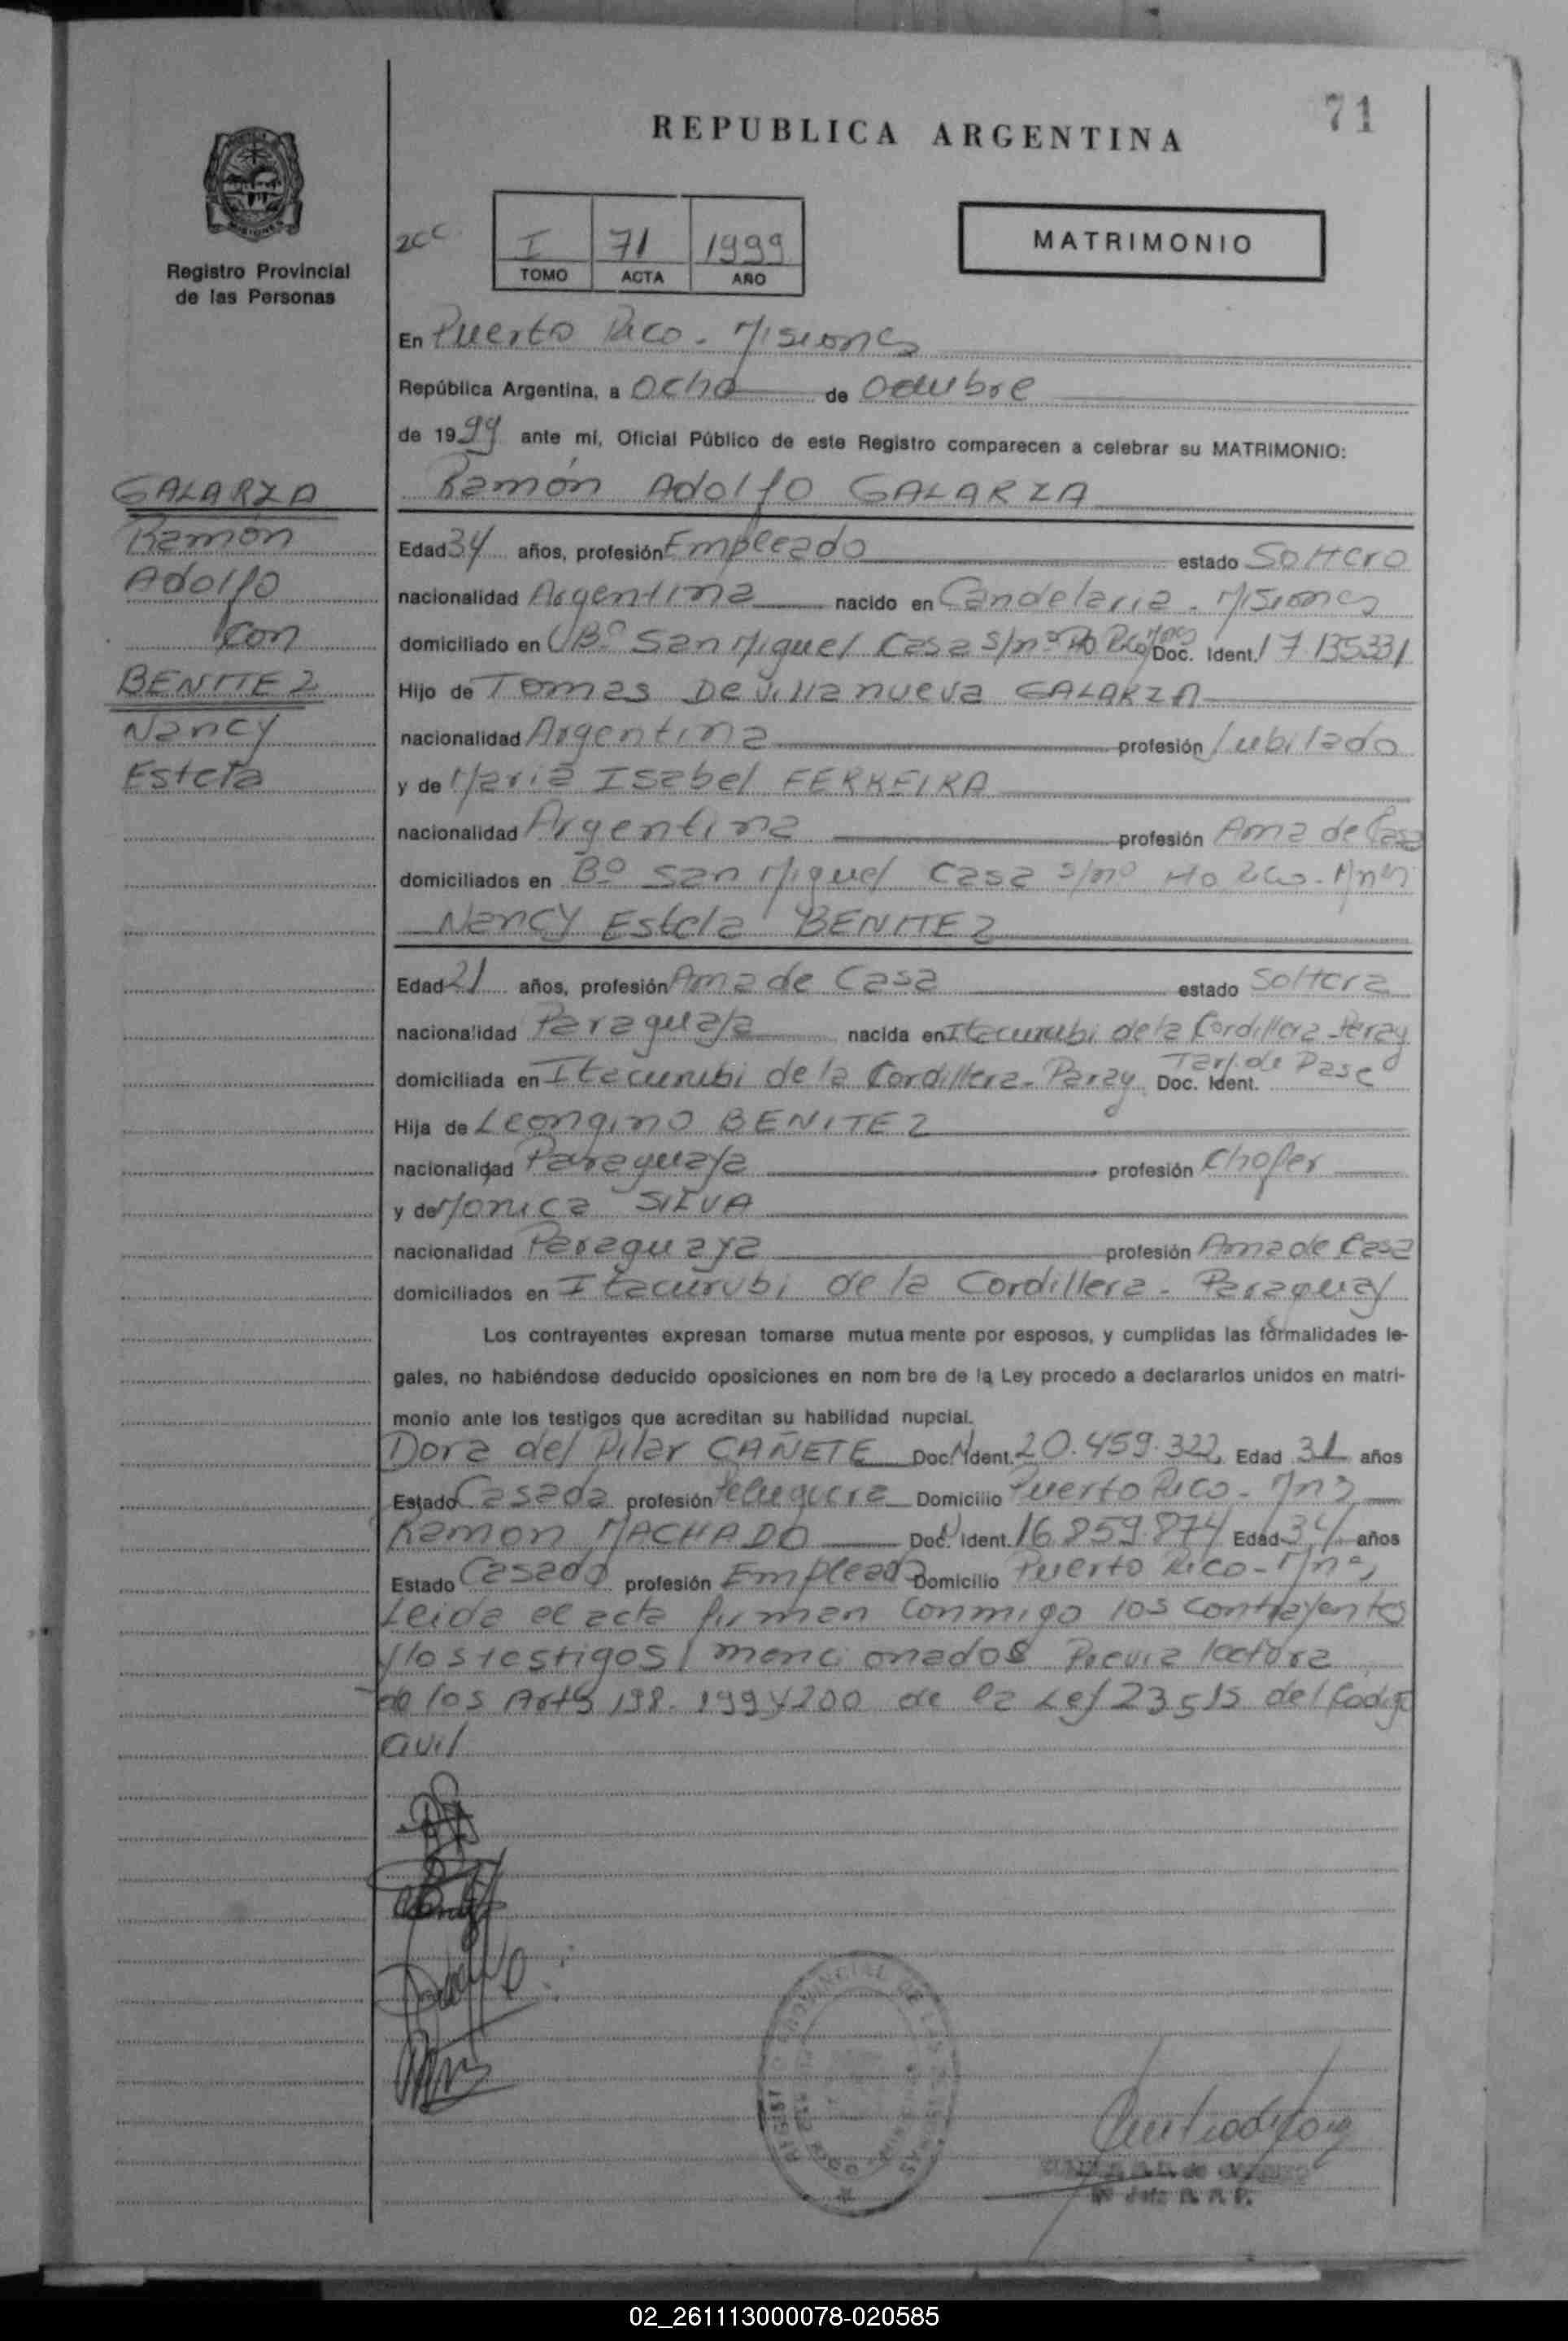 71
REPUBLICA ARGENTINA
MATRIMONIO
2CC
I 71 1999
TOMO ACTA AÑO
Registro Provincial
de las Personas
En Puerto Rico. Misiones
República Argentina, a Ocho de Octubre
de 1999 ante mí, Oficial Público de este Registro comparecen a celebrar su MATRIMONIO:
GALARZA
Ramón
Adolfo
Con
BENITEZ
Nancy
Estela
Ramón Adolfo GALARZA
Edad 34 años, profesión Empleado estado Soltero
nacionalidad Argentina nacido en Candelaria. Misiones
domiciliado en Bº San Miguel Casa s/nº Pto Rico Mnes Doc. Ident. 17.135331
Hijo de Tomas De Villanueva GALARZA
nacionalidad Argentina profesión Jubilado
y de Maria Isabel FERREIRA
nacionalidad Argentina profesión Ama de Casa
domiciliados en Bº San Miguel Casa s/nº Pto Rico. Mnes
Nancy Estela BENITEZ
Edad 21 años, profesión Ama de Casa estado Soltera
nacionalidad Paraguaya nacida en Itacurubi de la Cordillera Paray
domiciliada en Itacurubi de la Cordillera. Paray Doc. Ident. Tarj. de Paseo
Hija de Leongino BENITEZ
nacionalidad Paraguaya profesión Chofer
y de Monica SILVA
nacionalidad Paraguaya profesión Ama de Casa
domiciliados en Itacurubi de la Cordillera. Paraguay
Los contrayentes expresan tomarse mutua mente por esposos, y cumplidas las formalidades le-
gales, no habiéndose deducido oposiciones en nom bre de la Ley procedo a declararlos unidos en matri-
monio ante los testigos que acreditan su habilidad nupcial.
Dora del Pilar CAÑETE Doc. N Ident. 20.459.322 Edad 31 años
Estado Casada profesión Peluquera Domicilio Puerto Rico. Mnes
Ramon MACHADO Doc. N Ident. 16.859.874 Edad 34 años
Estado Casado profesión Empleado Domicilio Puerto Rico - Mnes
Leida el acta firman conmigo los contrayentes
y los testigos mencionados Previa lectura
de los Arts 198. 199 y 200 de la Ley 23515 del Codigo
Civil
REGISTRO PROVINCIAL DE LAS PERSONAS
02_261113000078-020585